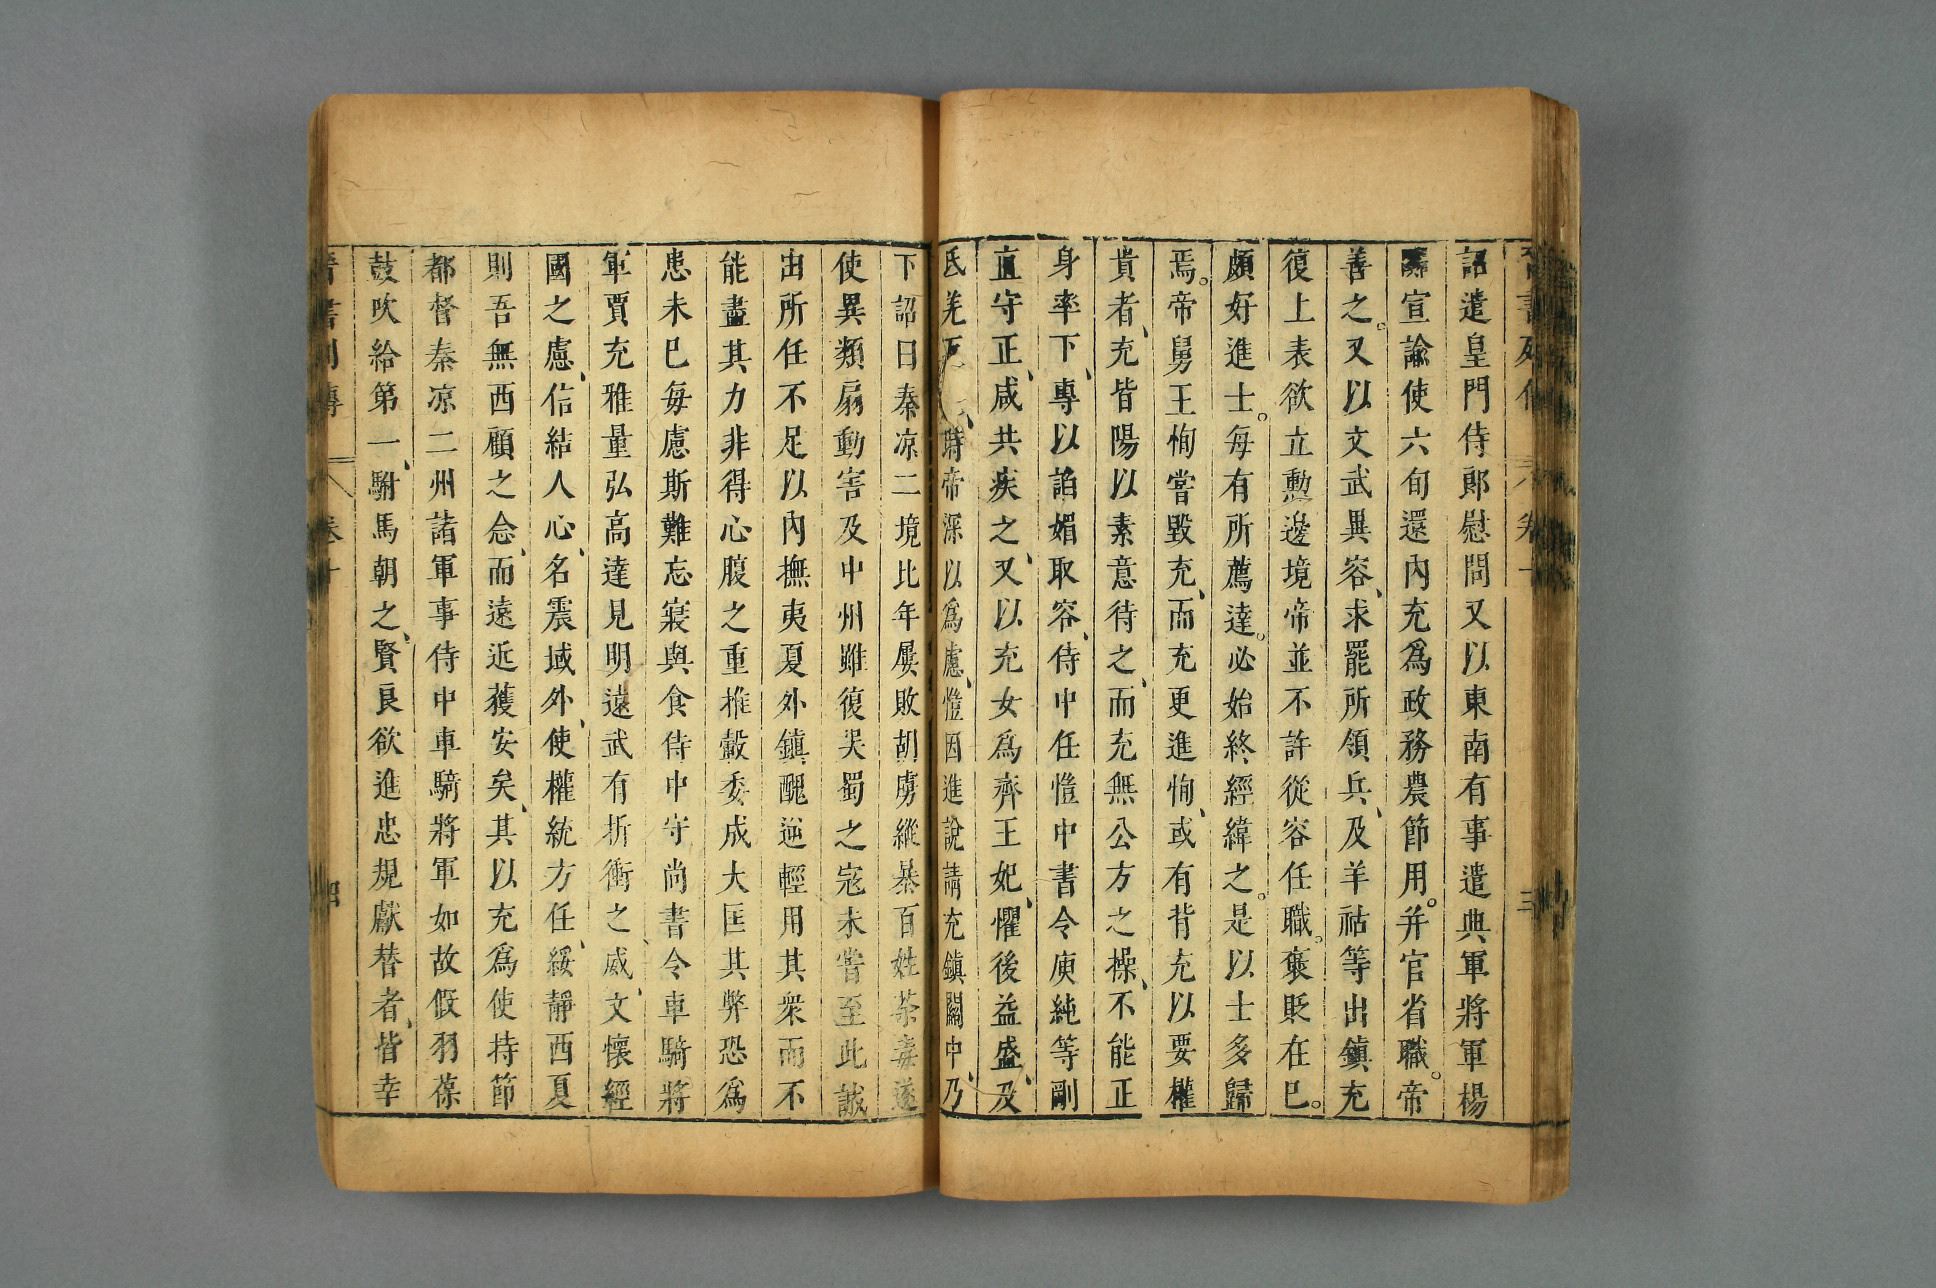 詔遣皇門侍郎慰問又以東南有事遣典軍將軍楊
囂宣諭使六旬還內充爲政務農節用。并官省職。帝
善之。又以文武異容、求罷所領兵、及羊祜等出鎮充
復上表欲立勳邊境帝並不許從容任職。褒貶在巳。
頗好進士。每有所薦達。必始終經緯之。是以士多歸
焉。帝舅王恂嘗毀充、而充更進恂、或有背充以要權
貴者、充皆陽以素意待之、而充無公方之操、不能正
身率下、專以諂媚取容、侍中任愷中書令庾純等剛
直守正、咸共疾之、又以充女爲齊王妃、懼後益盛、及
氐羌反 時帝深以爲慮、愷因進說請充鎮關中、乃
下詔曰秦凉二境比年屢敗胡虜縱暴百姓荼毒遂
使異類扇動害及中州雖復吳蜀之寇未嘗至此誠
由所任不足以內撫夷夏外鎮醜逆輕用其衆而不
能盡其力非得心腹之重推轂委成大匡其弊恐爲
患未巳每慮斯難忘寢與食侍中守尚書令車騎將
軍賈充雅量弘高達見明遠武有折衝之威、文懷經
國之慮、信結人心、名震域外、使權統方任、綏靜西夏
則吾無西顧之念、而遠近獲安矣、其以充爲使持節
都督秦凉二州諸軍事侍中車騎將軍如故假羽葆
鼓吹給第一駙馬朝之賢良欲進忠規獻替者、皆幸
晉書列傳 卷十 四